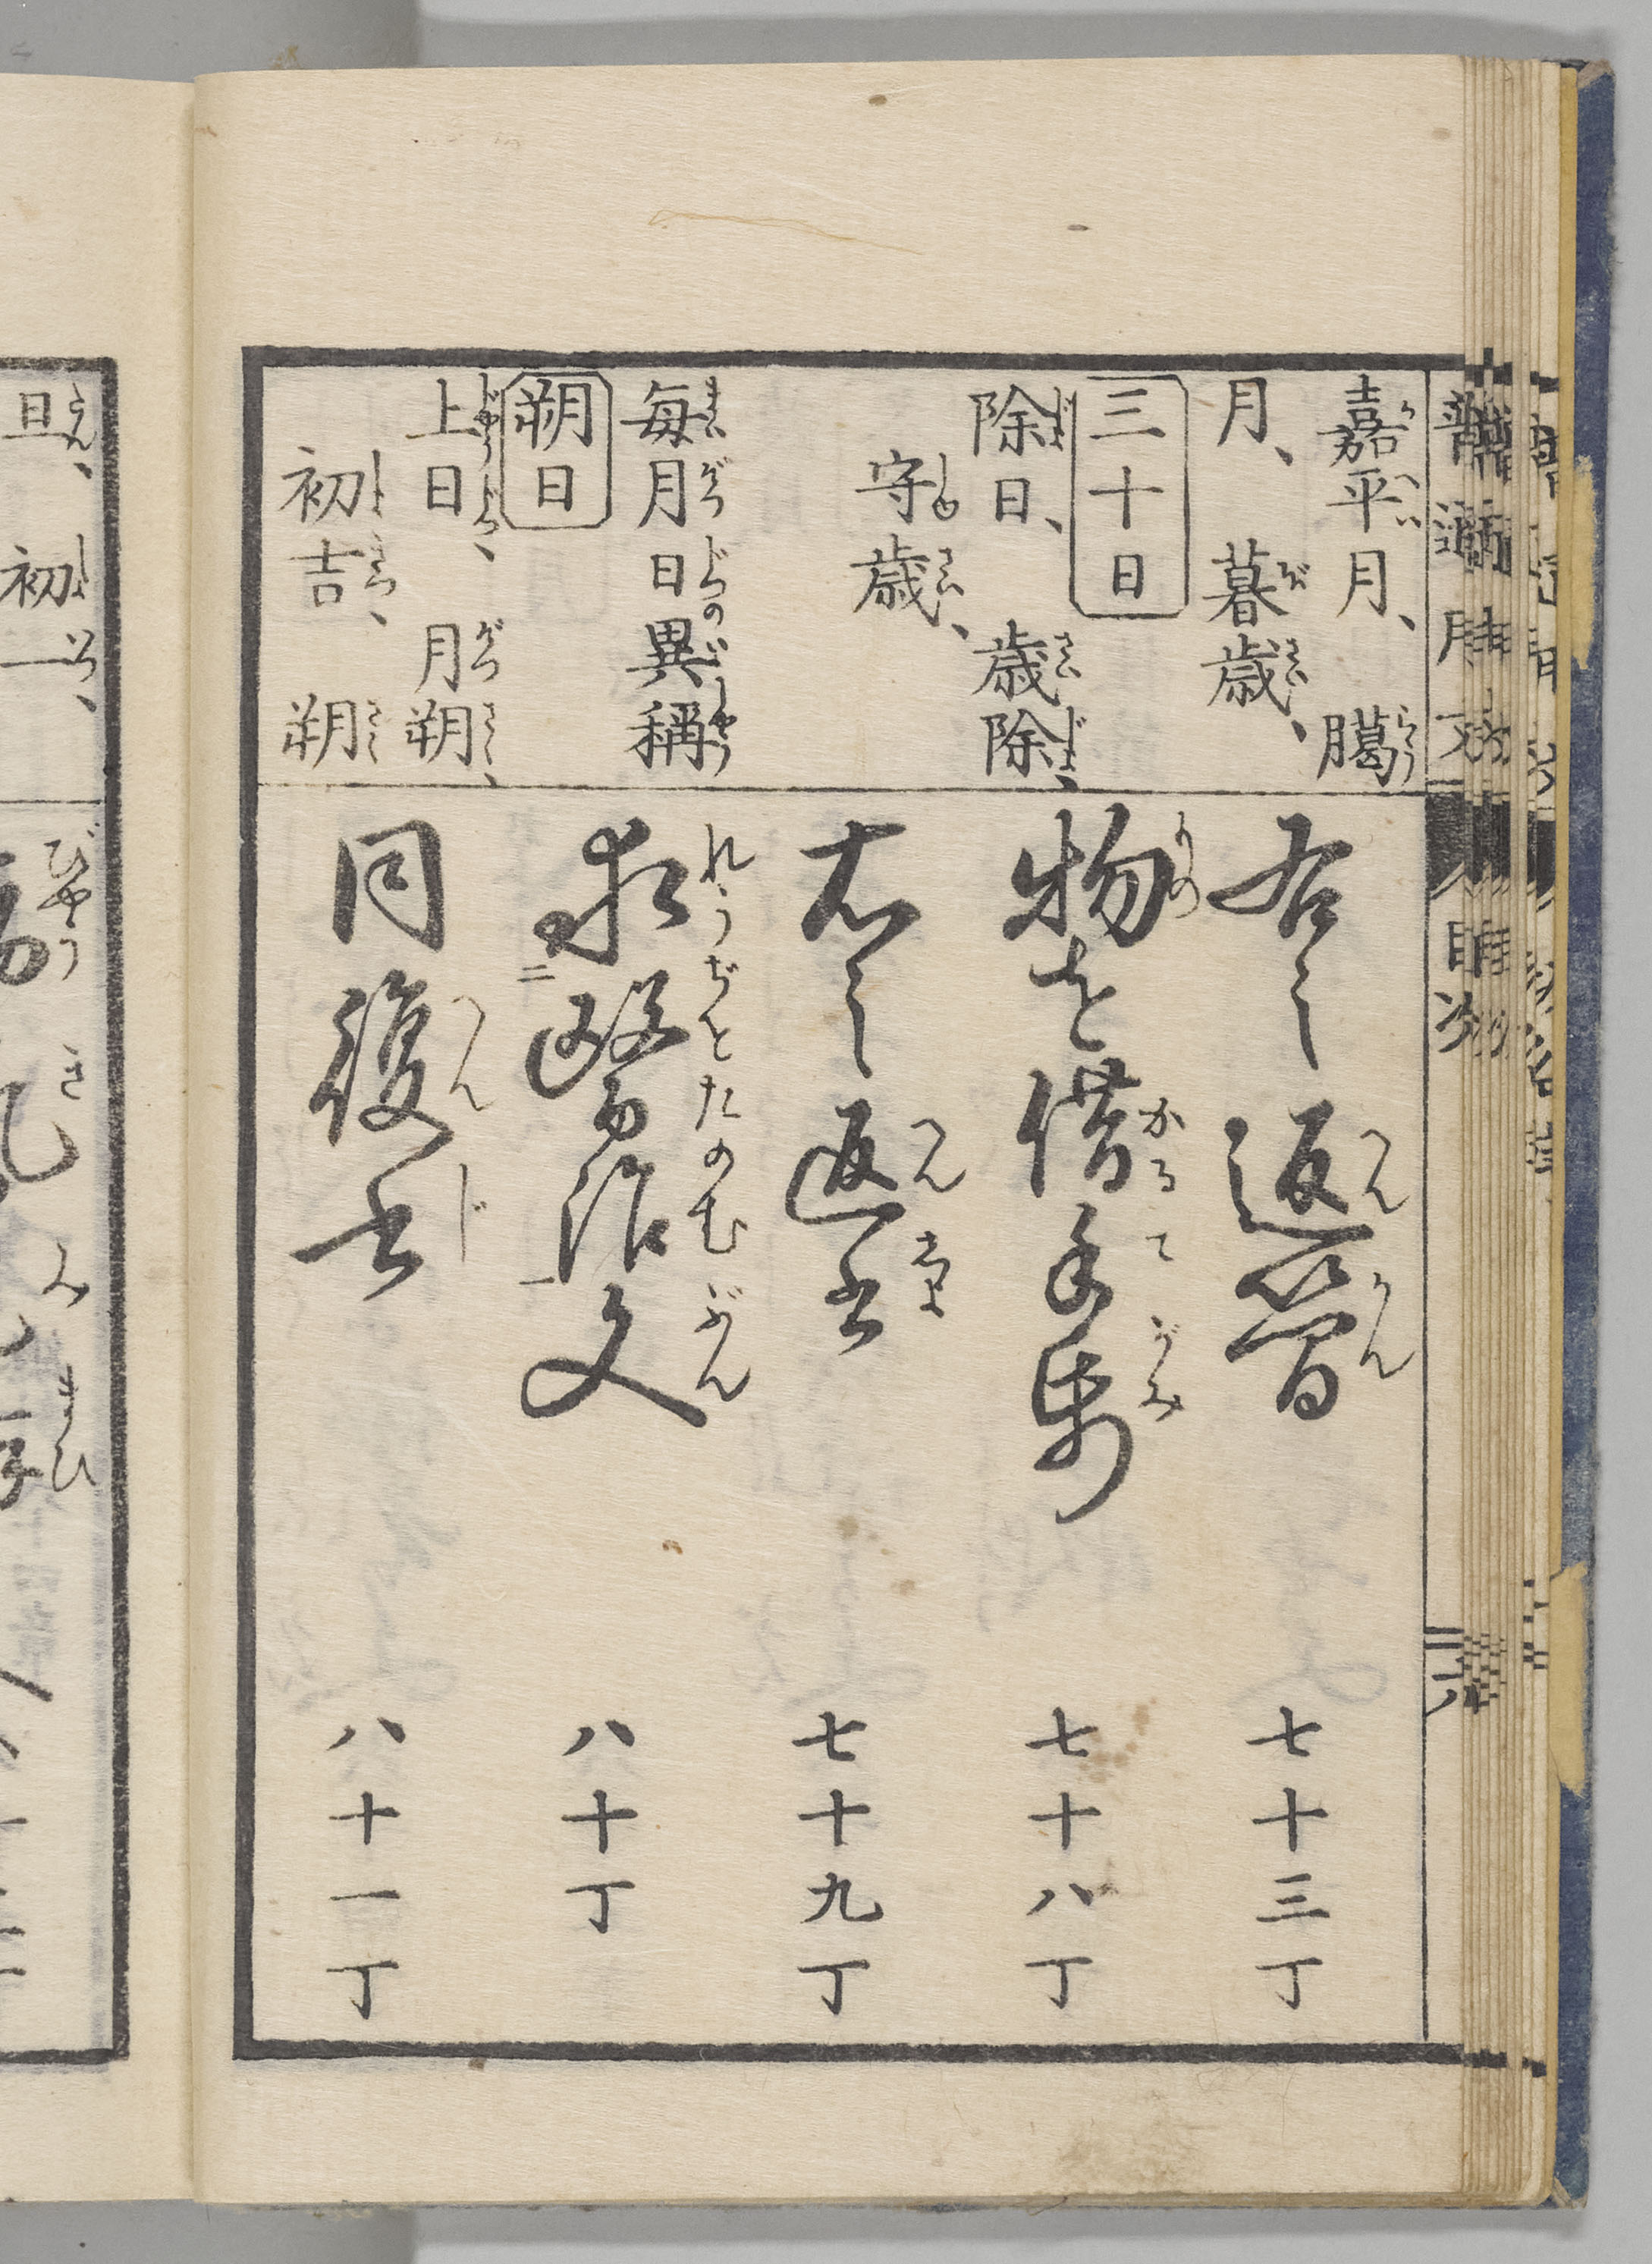 嘉平月、臈
月、暮歳、
三十日
除日、歳除、
守歳、
毎月日異稱
朔日
上日、月朔、
初吉、朔
右之返簡 七十三丁
物を借手紙 七十八丁
右之返書 七十九丁
求醫治文 八十丁
同復書 八十一丁
旦、初一、